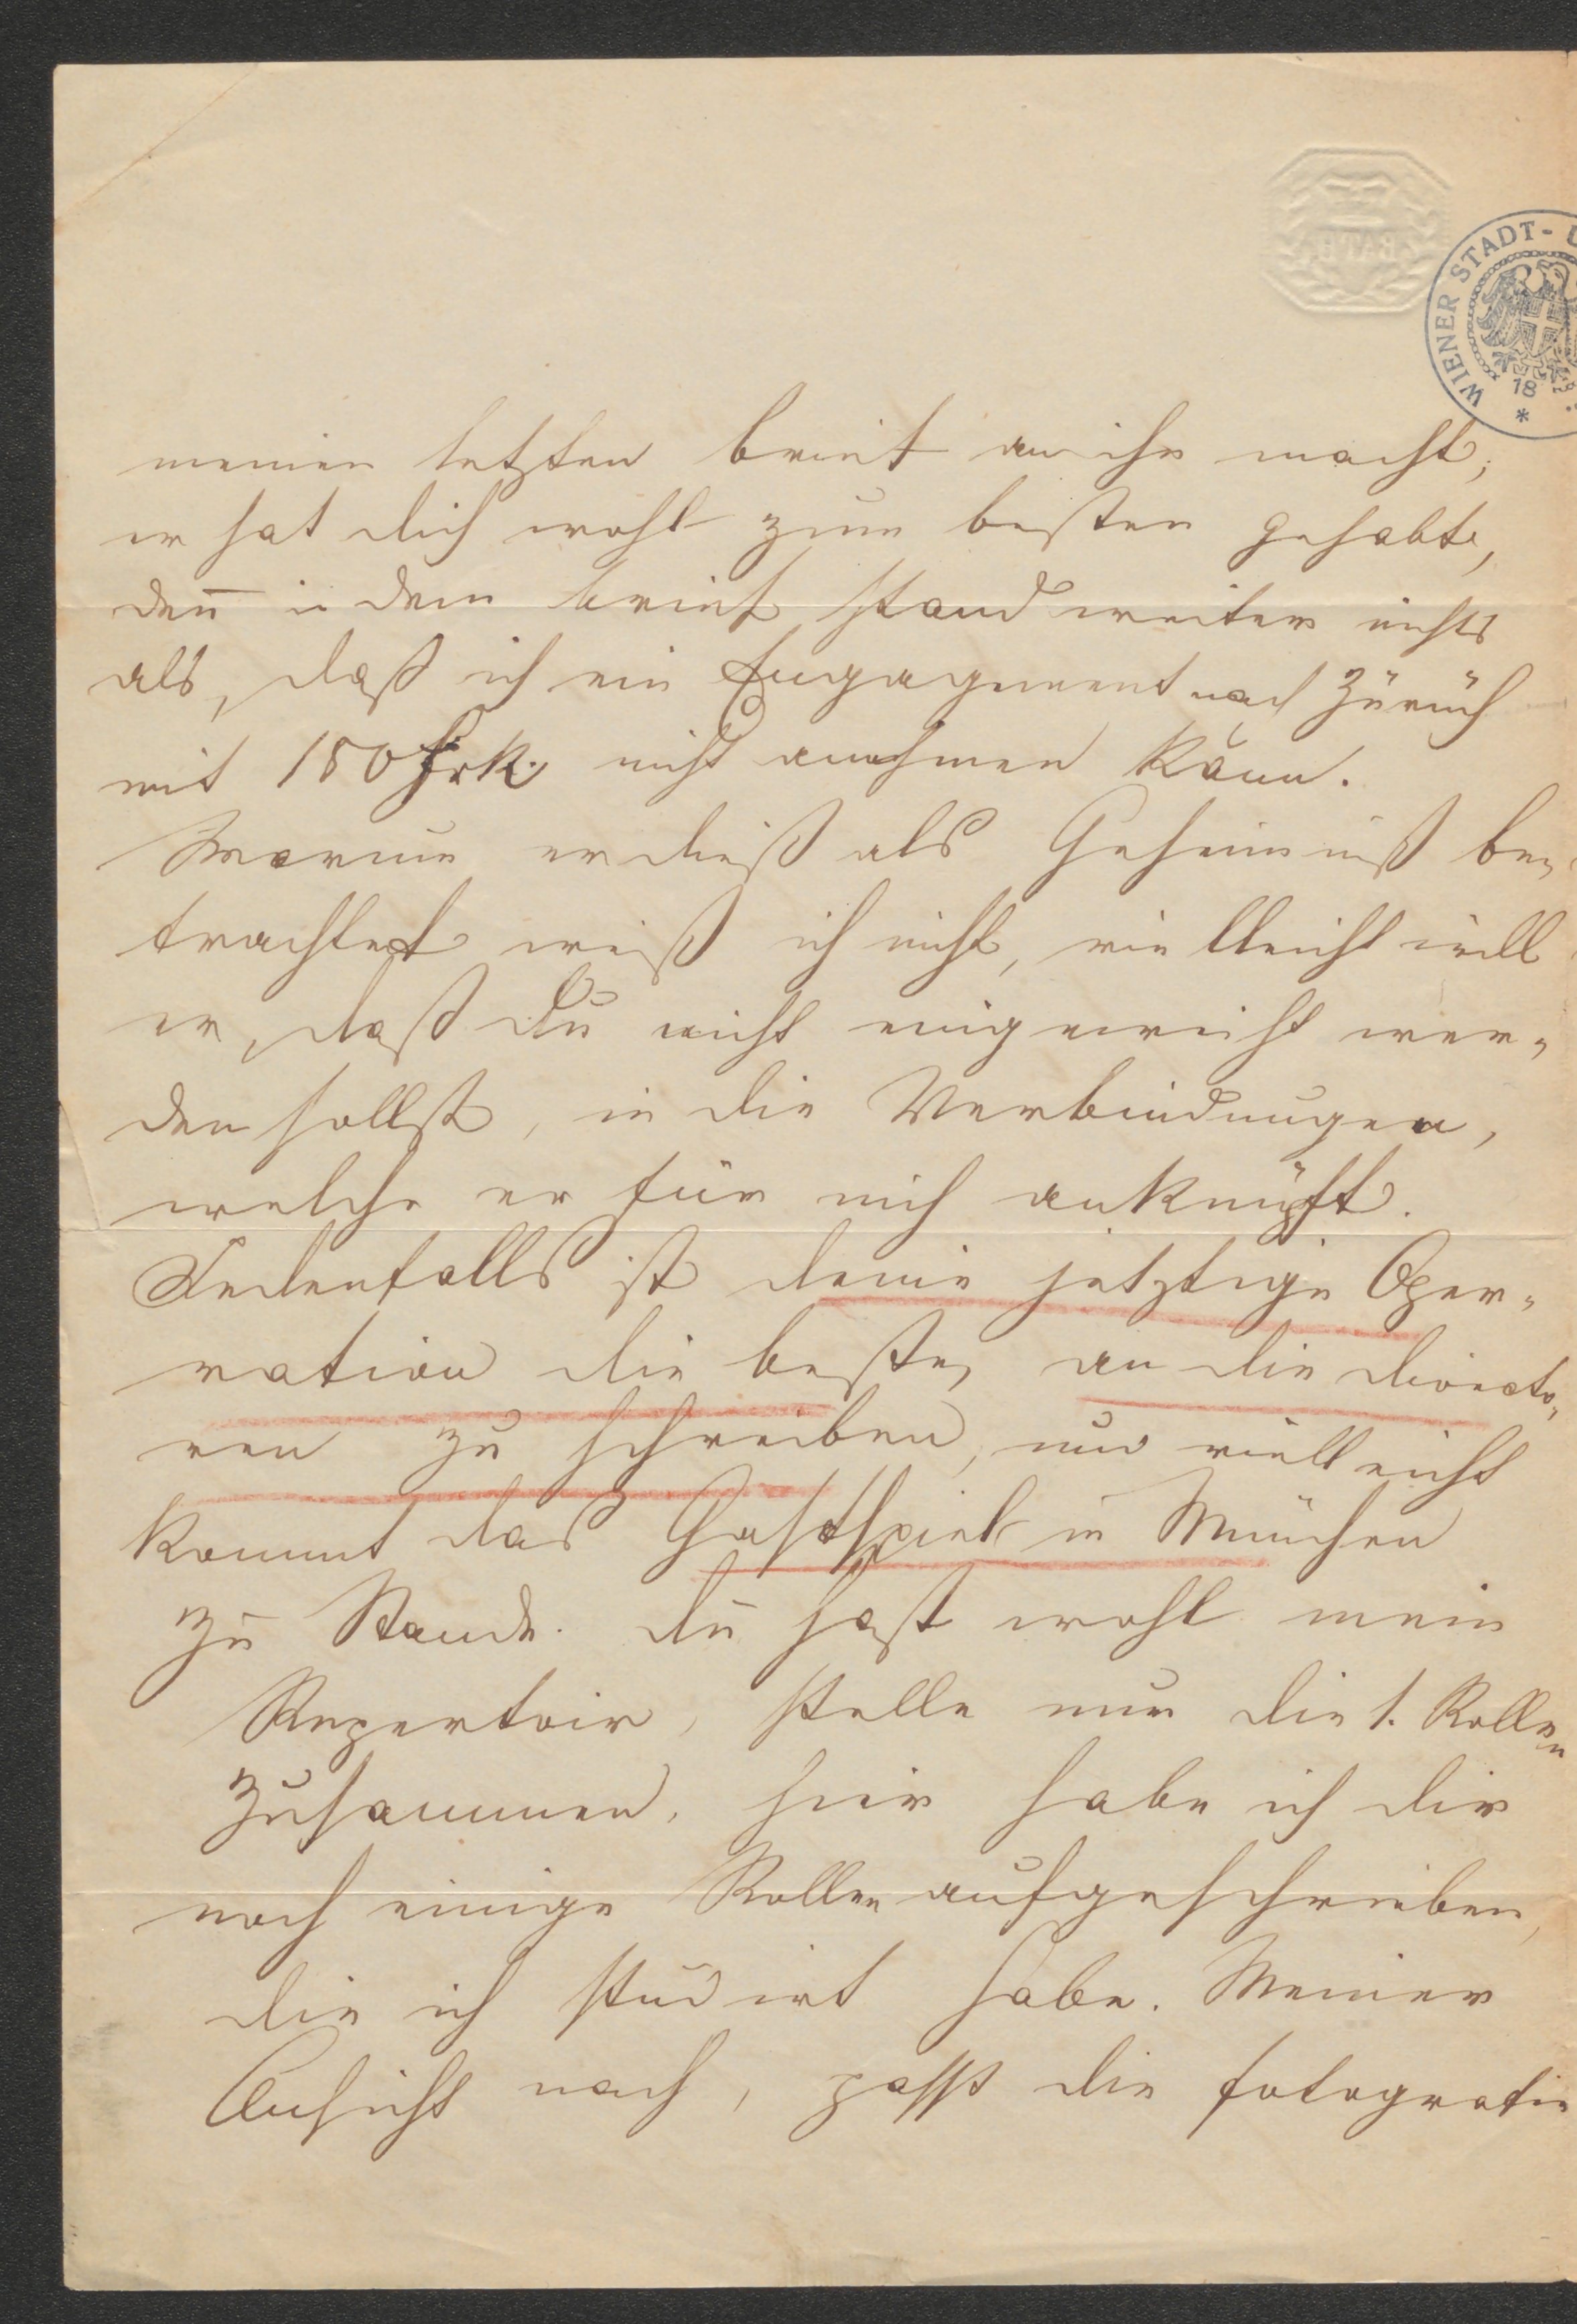 BATH
WIENER STADT-
18
meinen letzten brief an ihn macht,
er hat dich wohl zum besten gehabt,
den̄ in dem brief stand weiter nichts
als, daß ich ein Engagement nach Zürich
mit 180 Frk. nicht annehmen kann.
Warum er dieß als Geheimniß be-
trachtet weiß ich nicht, vielleicht will
er, daß du nicht eingeweiht wer-
den sollst, in die Verbindungen,
welche er für mich anknüpft.
Jedenfalls ist deine jetztige Oper-
ration die beste, an die directo-
ren zu schreiben, nur vielleicht
kommt das Gastspiel in München
zu Stande. du hast wohl mein
Repertoir, stelle nur die 1. Rollen
zusammen, hier habe ich dir
noch einige Rollen aufgeschrieben,
die ich studirt habe. Meiner
Ansicht nach, passt die fotografie